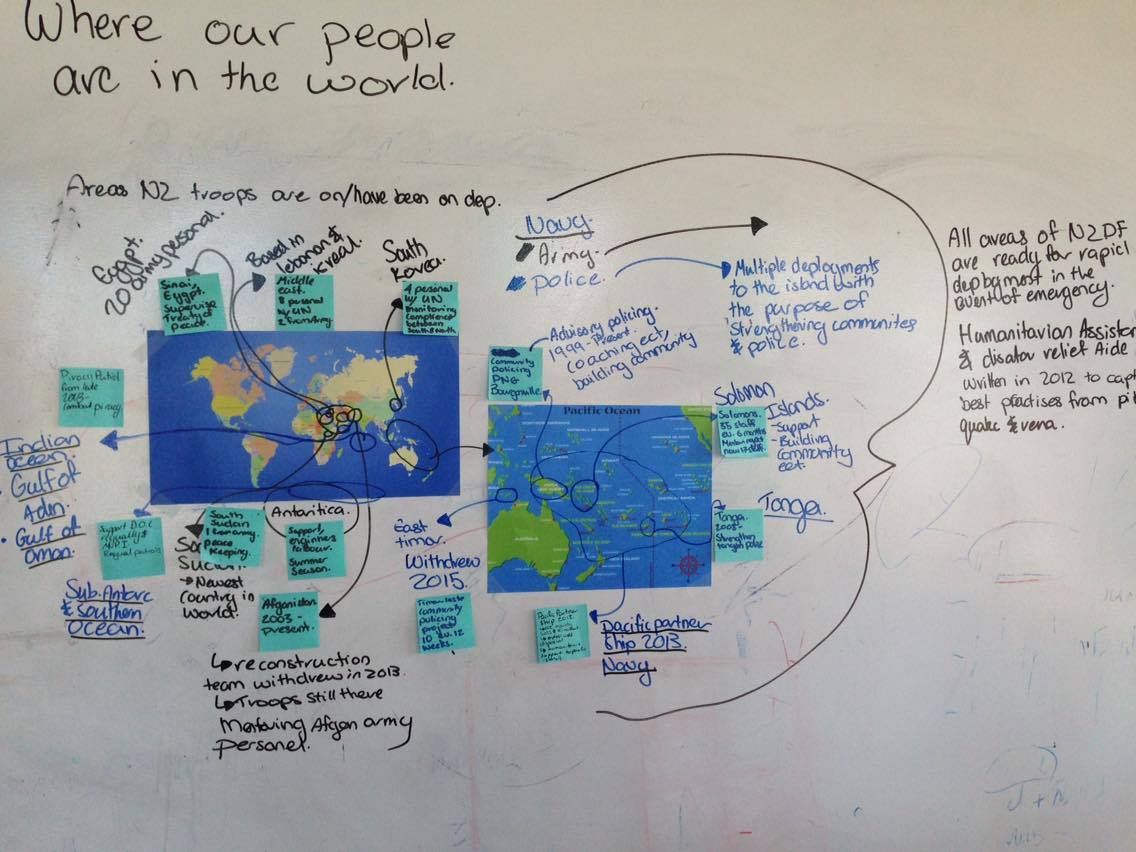 Where our people
are in the world.
Areas NZ troops are on/have been on dep.
Egypt.
28 army personal.
Sinai,
Egypt.
Supervise
Treaty of
peace.
Based in
lebanon &
isreal.
Middle
east.
8 personal
w/ UN
2 from Army.
South
Korea.
4 personal
w/ UN
monitoring
compliance
between
South & North
Navy.
Army.
Police.
Multiple deployments
to the island with
the purpose of
Strengthering communites
& police.
Advisory policing.
1999 - Present.
coaching ect,
building community
community
policing
PNG
Bourganville.
All areas of NZDF
are ready for rapid
deployment in the
event of emergency.
Humanitarian Assistan
& disator relief Aide
written in 2012 to capt
best practises from pit
quake & rena.
Piracy Patrol
from late
2013 -
combat piracy
Indian
ocean.
Gulf of
Adin.
Gulf of
oman.
Pacific Ocean
AUSTRALIA
Solomon
Islands.
- Support
- Building
Community
ect.
Solomons.
35 staff
ev. 6 months
now 17 staff.
Tonga.
Tonga.
2008-
Strengthen
tongan police
Support D.O.C
MPI
Regual patrols
Sub. Antarc
& Southern
Ocean.
South
Sudan
1 from army.
peace
keeping.
South
Sudan.
→ Newest
Country in
World.
Antaritica.
Support,
engineers
harbour.
Summer
Season.
Afganistan
2003 -
present.
↳ reconstruction
team withdrew in 2013
↳ Troops still there
Mentoring Afgan army
personel.
East
timor.
Withdrew
2015.
Timor Leste
Community
policing
project
10 ev. 12
weeks.
Pacific Partner
Ship 2013
Pacific partner
Ship 2013.
Navy